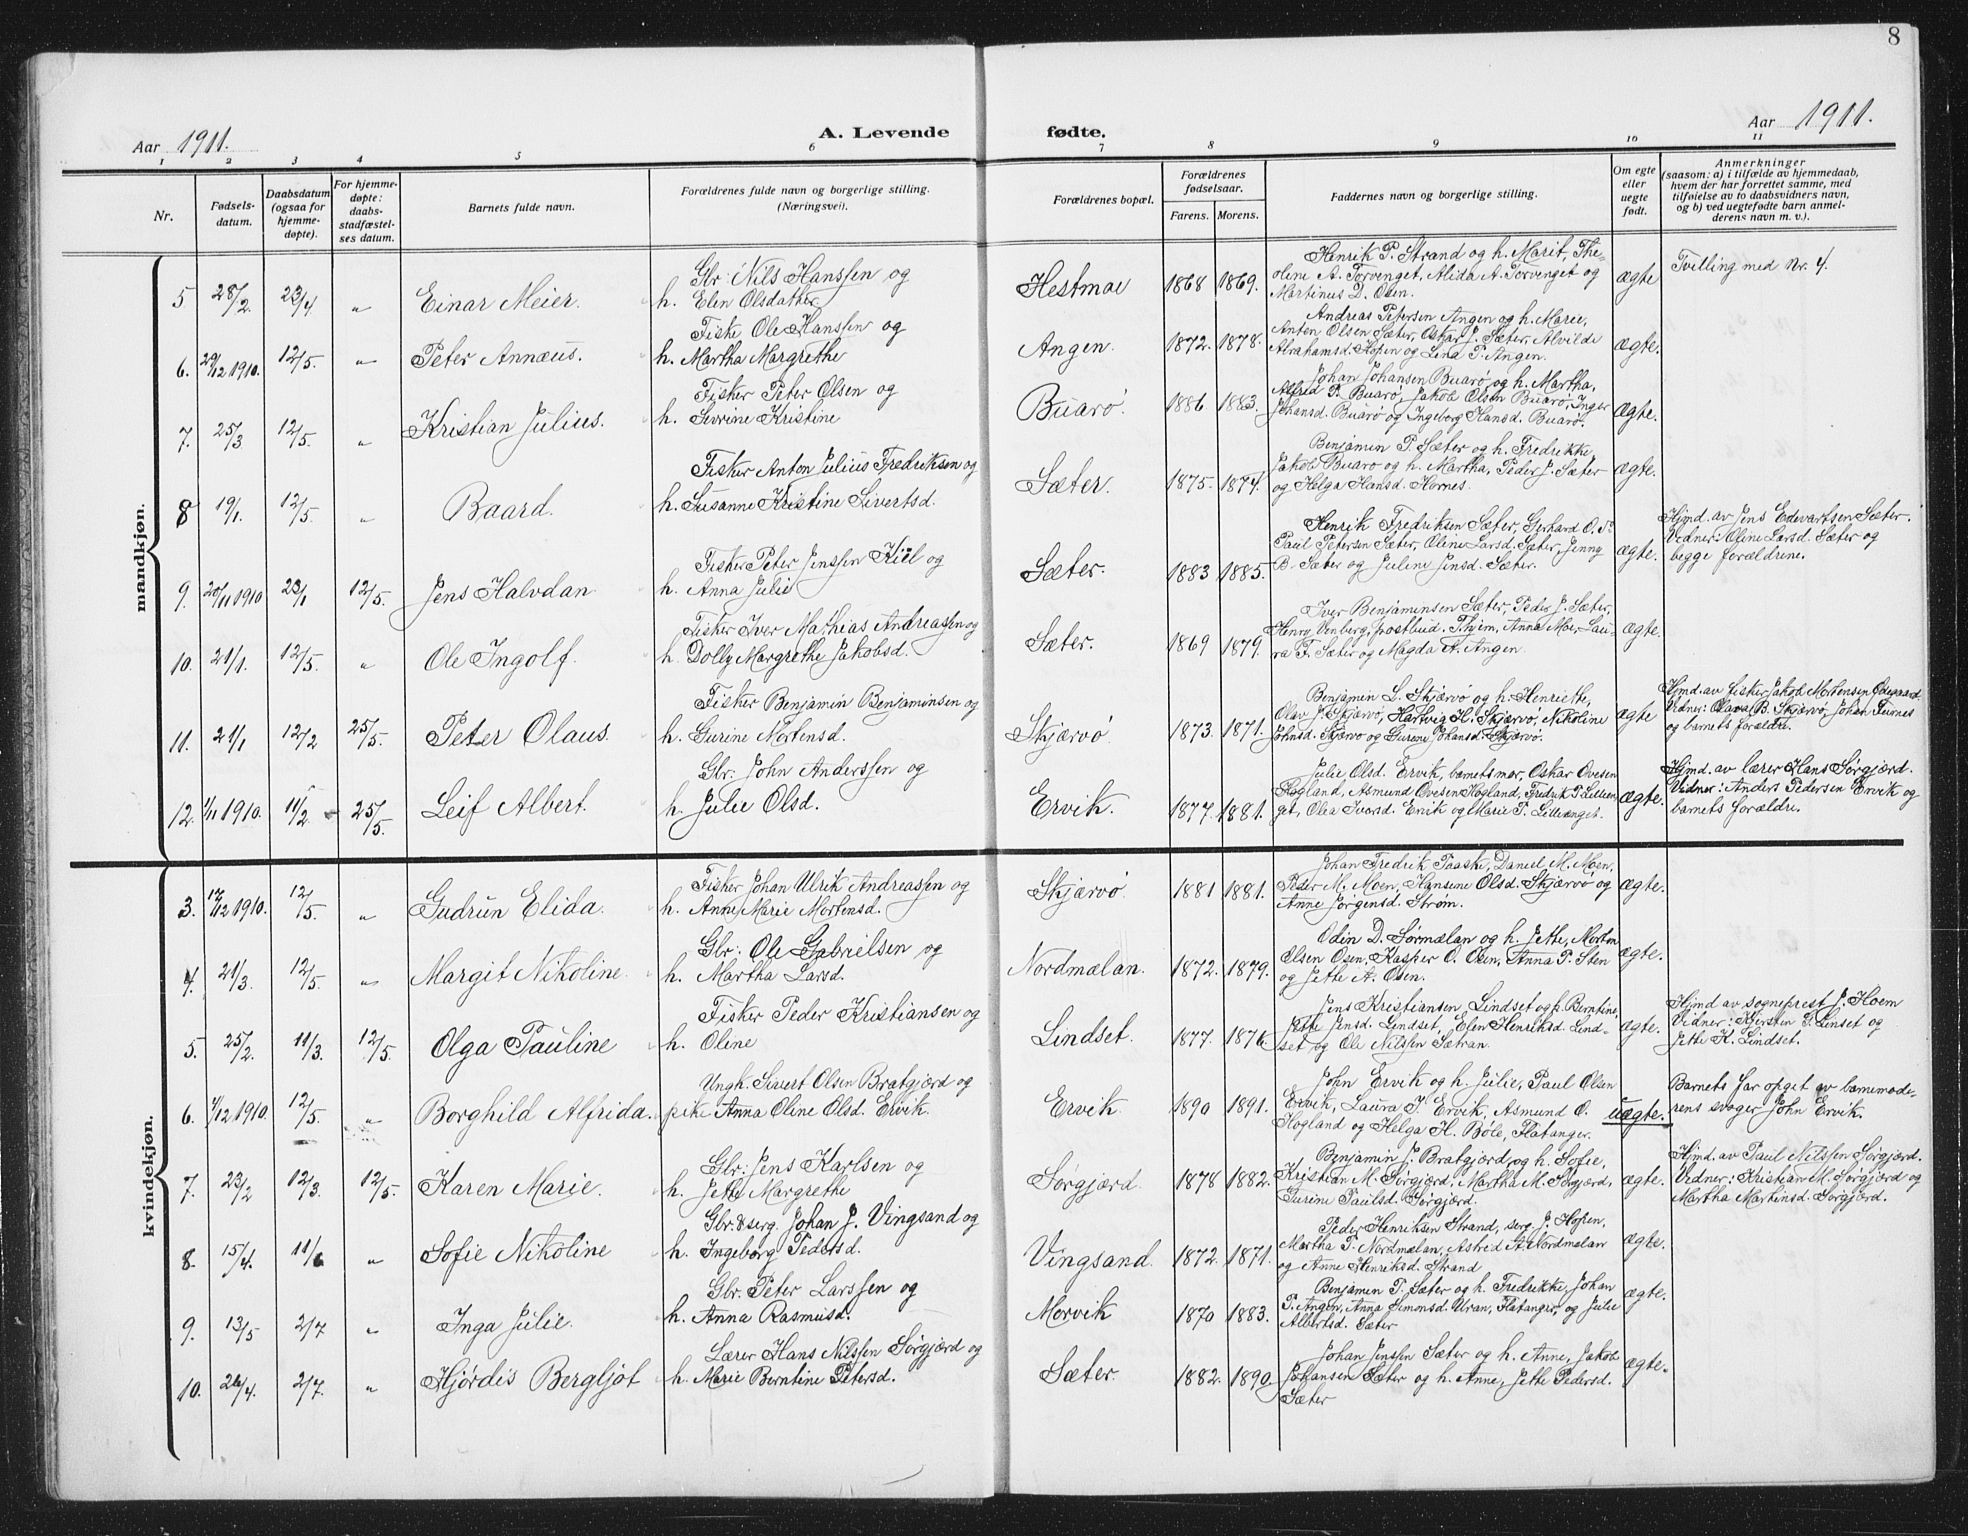 8
Aar 1911. A. Levende fødte. Aar 1911.
1 2 3 4 5 6 7 8 9 10 11
Nr.
Fødsels-
datum.
Daabsdatum
(ogsaa for
hjemme-
døpte).
For hjemme-
døpte:
daabs-
stadfæstel-
ses datum.
Barnets fulde navn.
Forældrenes fulde navn og borgerlige stilling.
(Næringsvei).
Forældrenes bopæl.
Forældrenes
fødselsaar.
Farens. Morens.
Faddernes navn og borgerlige stilling.
Om egte
eller
uegte
født.
Anmerkninger
(saasom: a) i tilfælde av hjemmedaab,
hvem der har forrettet samme, med
tilføielse av to daabsvidners navn,
og b) ved uegtefødte barn anmel-
derens navn m. v.).
mandkjøn.
5 28/2 23/4 " Einar Meier.
Gbr. Nils Hanssen og
h. Elen Olsdatter
Hestmoe 1868 1869.
Henrik P. Strand og h. Marit, The-
oline A. Torvenget, Alida A. Torvenget og
Martinus D. Osen.
ægte
Tvilling med Nr. 4.
6. 29/12 1910. 12/5. " Peter Annæus.
Fisker Ole Hanssen og
h. Martha Margrethe
Angen. 1872. 1878.
Andreas Petersen Angen og h. Marie,
Anton Olsen Sæter, Oskar J. Sæter, Alvilde
Abrahamsd. Hopen og Lina P. Angen.
ægte.
7. 25/3 12/5. " Kristian Julius.
Fisker Peter Olsen og
h. Sivrine Kristine
Buarø. 1886 1883.
Johan Johansen Buarø og h. Martha,
Alfred P. Buarø, Jakob Olsen Buarø, Inger
Johansd. Buarø og Ingeborg Hansd. Buarø.
ægte.
8 19/1. 12/5. " Baard.
Fisker Anton Julius Fredriksen og
h. Susanne Kristine Sivertsd.
Sæter. 1875. 1874.
Benjamin P. Sæter og h. Fredrikke,
Jakob Buarø og h. Martha, Peder J. Sæter
og Helga Hansd. Hornes.
ægte.
9. 20/11 1910 23/1 12/5. Jens Halvdan
Fisker Peter Jenssen Kiil og
h. Anna Julie
Sæter. 1883 1885.
Henrik Fredriksen Sæter, Gerhard O.
Paul Petersen Sæter, Oline Larsd. Sæter, Jenny
B. Sæter og Juline Jensd. Sæter.
ægte.
Hjmd. av Jens Edvartsen Sæter.
Vidner: Oline Larsd. Sæter og
begge forældrene.
10. 21/1. 12/5. " Ole Ingolf.
Fisker Iver Mathias Andreassen og
h. Dolly Margrethe Jakobsd.
Sæter. 1869 1879.
Iver Benjaminsen Sæter, Peder J. Sæter,
Henry Venberg, postbud. Thjem, Anna Moe, Lau-
ra F. Sæter og Magda A. Angen.
ægte.
11. 21/1 12/2 25/5. Peter Olaus.
Fisker Benjamin Benjaminsen og
h. Gurine Mortensd.
Skjærvø 1873. 1871.
Benjamin L. Skjærvø og h. Henriette,
Olav J. Skjærvø, Hartvig H. Skjærvø, Nikoline
Johnsd. Skjærvø og Gurine Johansd. Skjærvø.
ægte
Hjmd. av fisker Jakob Mortensen Ødegaard.
Vidner: Olava B. Skjærvø, Johan Furnes
og barnets forældre.
12. 1/11 1910. 11/2 25/5. Leif Albert.
Gbr: John Anderssen og
h. Julie Olsd.
Ervik. 1877. 1881.
Julie Olsd. Ervik, barnets mor, Oskar Ovesen
Hogland, Asmund Ovesen Hogland, Fredrik P. Lillen-
get, Olea Iversd. Ervik og Marie P. Lillevænget.
ægte.
Hjmd. av lærer Hans Sørgjærd.
Vidner: Anders Pedersen Ervik og
barnets forældre.
kvindekjøn.
3. 17/12 1910. 12/5. " Gudrun Elida.
Fisker Johan Ulrik Andreassen og
h. Anne Marie Mortensd.
Skjærvø 1881 1881.
Johan Fredrik Paaske, Daniel M. Moen,
Peder M. Moen, Hansine Olsd. Skjærvø og
Anne Jørgensd. Strøm.
ægte.
4. 21/3. 12/5. " Margit Nikoline.
Gbr: Ole Gabrielsen og
h. Martha Larsd.
Nordmælan. 1872. 1879.
Odin D. Sørmælan og h. Jette, Morten
Olsen Osen, Kasper O. Osen, Anna P. Sten
og Jette A. Osen.
ægte.
5. 25/2. 11/3. 12/5. Olga Pauline
Fisker Peder Kristiansen og
h. Oline
Lindset. 1877. 1876.
Jens Kristiansen Lindset og h. Berntine,
Jette Jensd. Lindset, Elen Henriksd. Lind-
set og Ole Nilssen Sætran.
ægte.
Hjmd av sogneprest J. Hoem
Vidner: Kjersten P. Linset og
Jette K. Lindset.
6. 1/12 1910. 12/5. " Borghild Alfrida.
Ungk. Sivert Olsen Bratgjærd og
pike Anna Oline Olsd. Ervik.
Ervik. 1890 1891.
John Ervik og h. Julie, Paul Olsen
Ervik, Laura J. Ervik, Asmund O.
Hogland og Helga H. Bøle, Flatanger.
uægte.
Barnets far opget av barnemode-
rens svoger John Ervik.
7. 23/2 12/3. 12/5. Karen Marie.
Gbr: Jens Karlsen og
h. Jette Margrethe
Sørgjærd. 1878 1882.
Benjamin J. Bratgjærd og h. Sofie,
Kristian M. Sørgjærd, Martha M. Sørgjærd,
Gurine Paulsd. Sørgjærd.
ægte.
Hjmd. av Paul Nilssen Sørgjærd.
Vidner: Kristian M. Sørgjærd og
Martha Martinsd. Sørgjærd.
8. 15/4. 11/6 " Sofie Nikoline
Gbr. & serg. Johan J. Vingsand og
h. Ingeborg Pedersd.
Vingsand. 1872. 1871.
Peder Henriksen Strand, serg. J. Hopen,
Martha P. Nordmælan, Astrid A. Nordmælan
og Anne Henriksd. Strand
ægte.
9. 13/5 2/7 " Inga Julie.
Gbr. Peter Larssen og
h. Anna Rasmusd.
Morvik 1870 1883.
Benjamin P. Sæter og h. Fredrikke, Johan
P. Angen, Anna Simonsd. Uran, Flatanger, og Julie
Albertsd. Sæter
ægte.
10. 26/4. 2/7. " Hjørdis Bergljot
Lærer Hans Nilssen Sørgjærd og
h. Marie Berntine Petersd.
Sæter. 1882. 1890.
Johan Jenssen Sæter og h. Anne, Jakob
Johansen Sæter og h. Anne, Jette Pedersd.
Sæter
ægte.